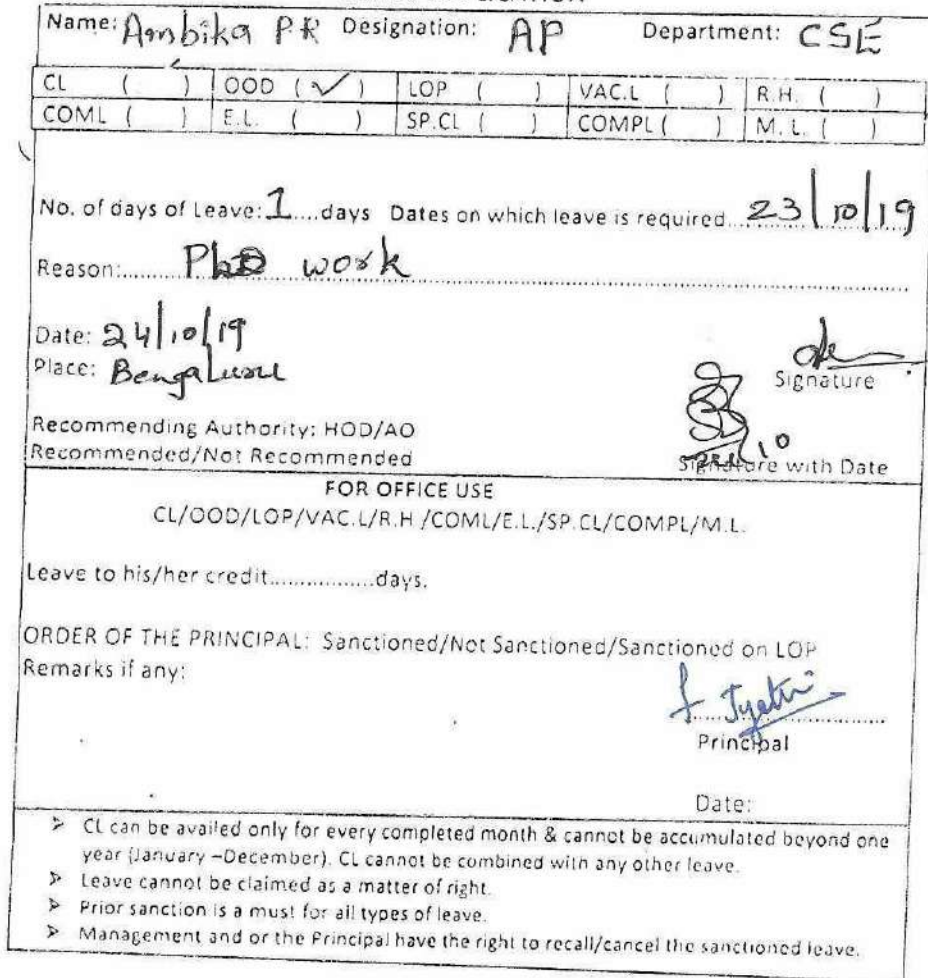 Name: Ambika PR Designation: AP Department: CSE
CL ( ) OOD ( ✓ ) LOP ( ) VAC.L ( ) R.H. ( )
COML ( ) E.L. ( ) SP.CL ( ) COMPL ( ) M.L. ( )
No. of days of Leave: 1....days Dates on which leave is required..23/10/19
Reason:........PhD work
Date: 24/10/19
Place: Bengaluru
Signature
Recommending Authority: HOD/AO
Recommended/Not Recommended
Signature with Date
FOR OFFICE USE
CL/OOD/LOP/VAC.L/R.H /COML/E.L./SP.CL/COMPL/M.L.
Leave to his/her credit.................days.
ORDER OF THE PRINCIPAL: Sanctioned/Not Sanctioned/Sanctioned on LOP
Remarks if any:
Principal
Date:
➤ CL can be availed only for every completed month & cannot be accumulated beyond one
year (January –December). CL cannot be combined with any other leave.
➤ Leave cannot be claimed as a matter of right.
➤ Prior sanction is a must for all types of leave.
➤ Management and or the Principal have the right to recall/cancel the sanctioned leave.